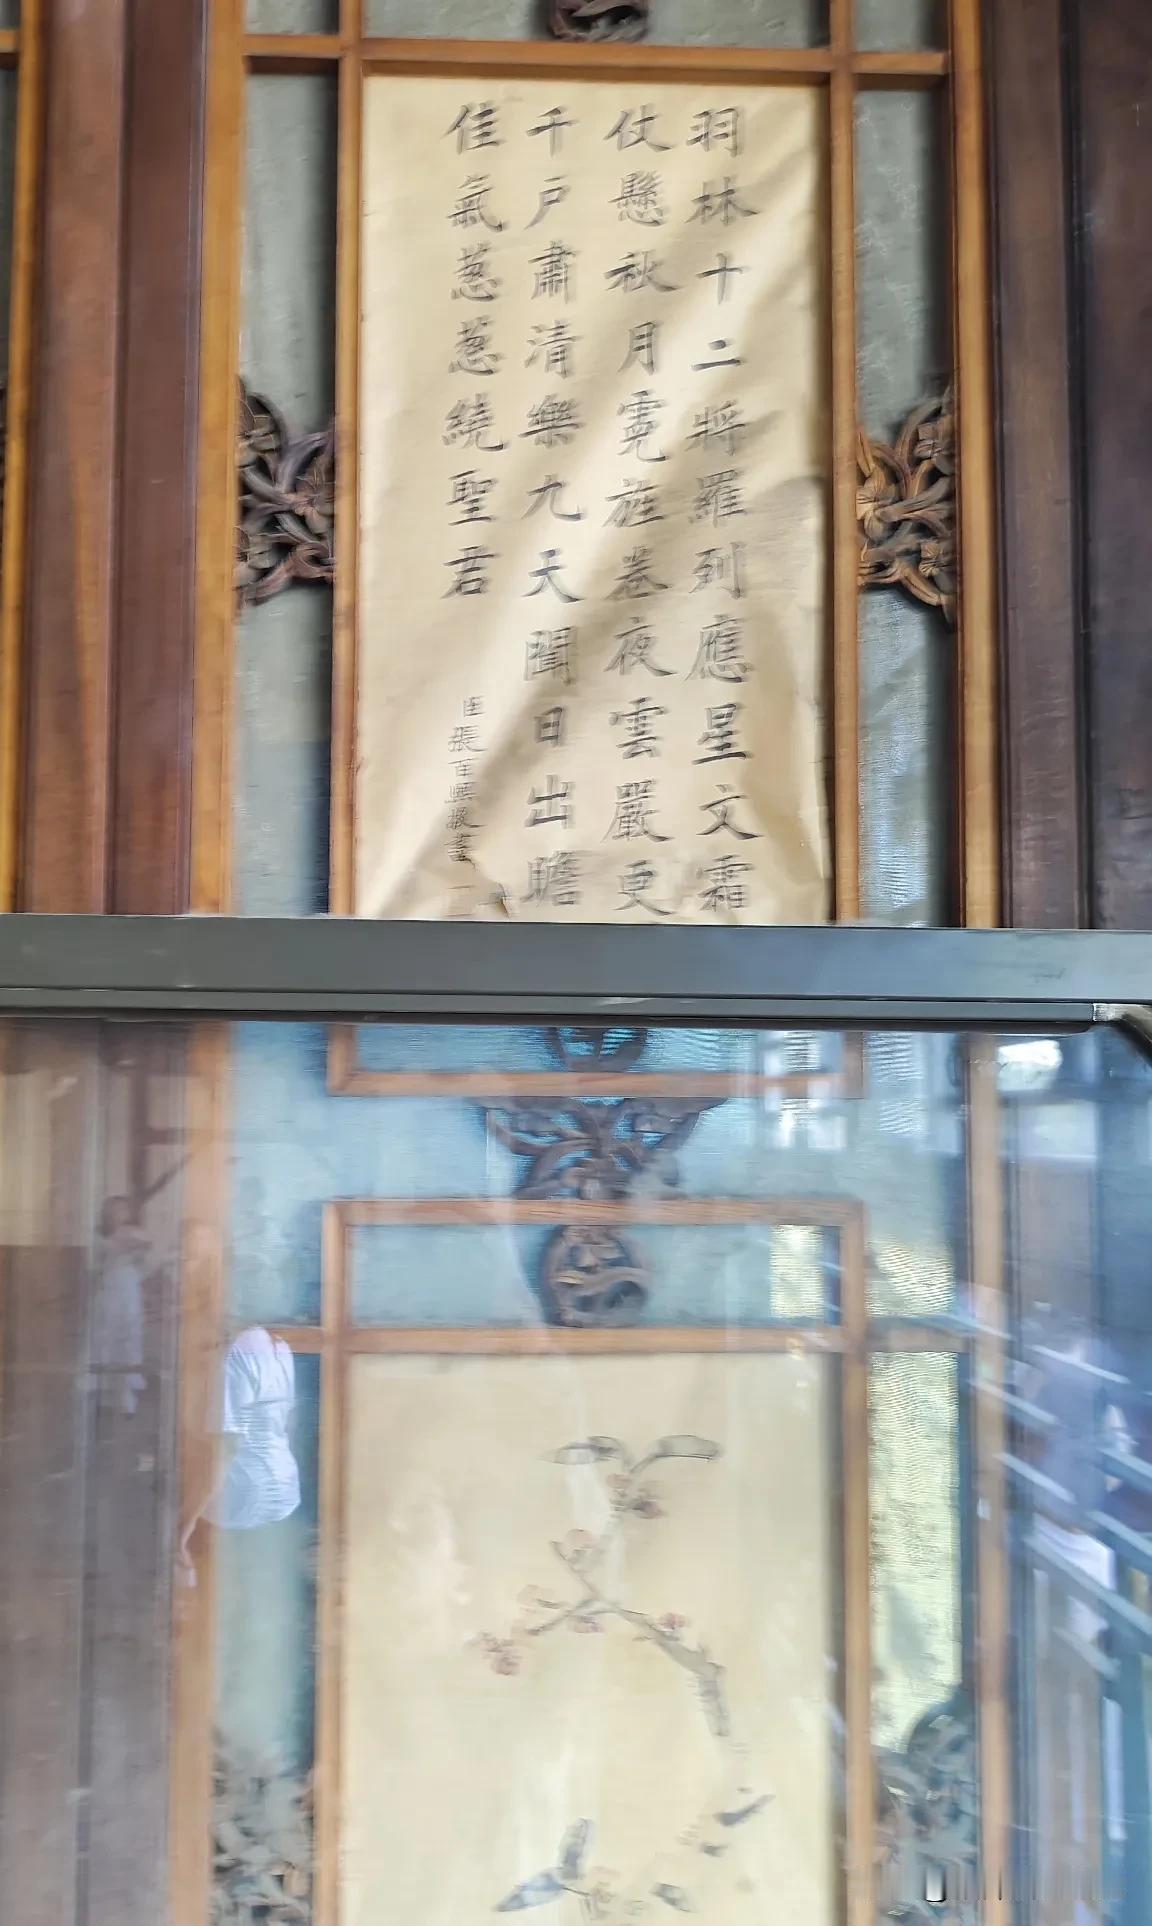 羽林十二將羅列應星文霜
仗懸秋月霓旌卷夜雲嚴更
千戶肅清樂九天聞日出瞻
佳氣蔥蔥繞聖君
臣張百熙敬書